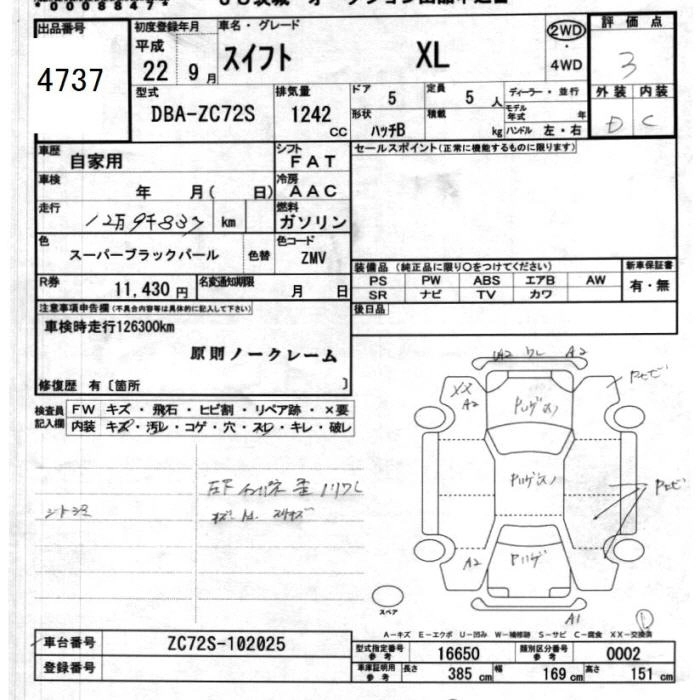 出品番号
4737
初度登録年月
平成
22 9月
車名・グレード
スイフト XL
2WD
・
4WD
評価点
3
外装 内装
D C
型式
DBA-ZC72S
排気量
1242
cc
ドア
5
定員
5 人
ディーラー・並行
モデル
年式
年
形状
ハッチB
積載
kg
ハンドル 左・右
車歴
自家用
シフト
FAT
車検
年 月( 日)
冷房
AAC
走行
12万9千837 km
燃料
ガソリン
色
スーパーブラックパール
色替
色コード
ZMV
R券
11,430 円
名変通知期限
月 日
セールスポイント(正常に機能するものに限ります)
装備品 (純正品に限り○をつけてください)
新車保証書
PS PW ABS エアB AW
有・無
SR ナビ TV カワ
後日品
注意事項申告欄(不具合内容等は具体的に記入して下さい)
車検時走行126300km
原則ノークレーム
修復歴 有〔箇所 〕
検査員
記入欄
FW キズ・飛石・ヒビ割・リペア跡・×要
内装 キズ・汚レ・コゲ・穴・スレ・キレ・破レ
A2 ワレ A2
XX
A2
A2
A1
スペア
A-キズ E-エクボ U-凹み W-補修跡 S-サビ C-腐食 XX-交換済
車台番号
ZC72S-102025
登録番号
型式指定番号
参考
16650
類別区分番号
参考
0002
車庫証明用
参考
長さ 385 cm 幅 169 cm 高さ 151 cm